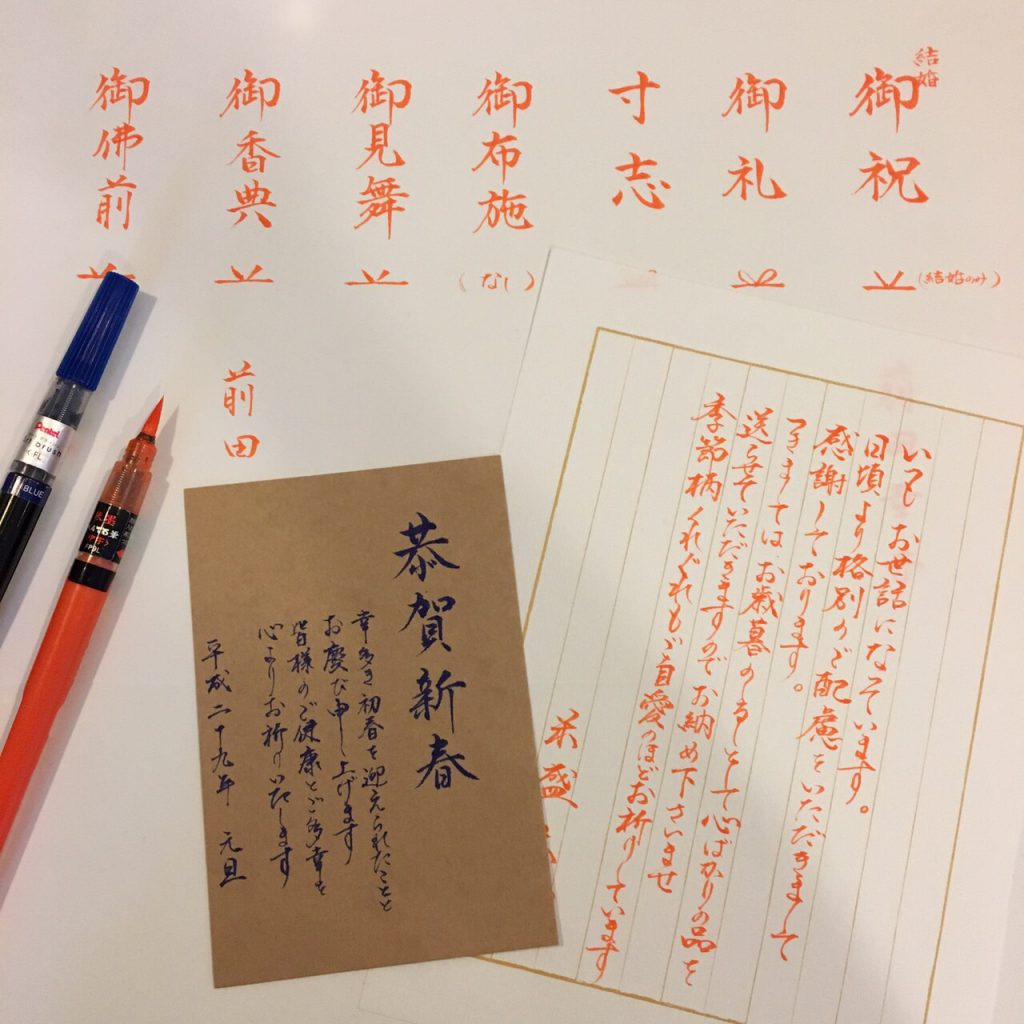 結婚
御祝
(結婚のみ)
御礼
寸志
御布施
(なし)
御見舞
御香典
前田
御佛前
いつもお世話になっています。
日頃より格別のご配慮をいただきまして
感謝しております。
つきましては、お歳暮のしるしとして心ばかりの品を
送らせていただきますのでお納め下さいませ
季節柄くれぐれもご自愛のほどお祈りしています
恭賀新春
幸多き初春を迎えられたことと
お慶び申し上げます
皆様のご健康とご多幸を
心よりお祈りいたします
平成二十九年 元旦
Pentel
brush
BLUE